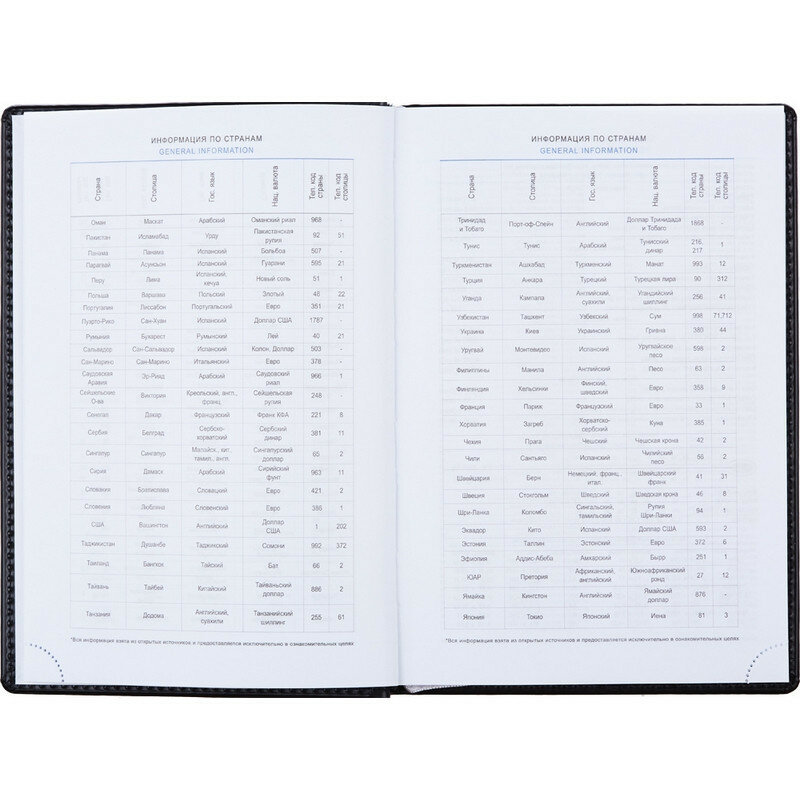 ИНФОРМАЦИЯ ПО СТРАНАМ
GENERAL INFORMATION
Страна Столица Гос. язык Нац. валюта Тел. код страны Тел. код столицы
Оман Маскат Арабский Оманский риал 968 -
Пакистан Исламабад Урду Пакистанская рупия 92 51
Панама Панама Испанский Бальбоа 507 -
Парагвай Асунсьон Испанский Гуарани 595 21
Перу Лима Испанский, кечуа Новый соль 51 1
Польша Варшава Польский Злотый 48 22
Португалия Лиссабон Португальский Евро 351 21
Пуэрто-Рико Сан-Хуан Испанский Доллар США 1787 -
Румыния Бухарест Румынский Лей 40 21
Сальвадор Сан-Сальвадор Испанский Колон, Доллар 503 -
Сан-Марино Сан-Марино Итальянский Евро 378 -
Саудовская Аравия Эр-Рияд Арабский Саудовский риал 966 1
Сейшельские О-ва Виктория Креольский, англ., франц. Сейшельская рупия 248 -
Сенегал Дакар Французский Франк КФА 221 8
Сербия Белград Сербско-хорватский Сербский динар 381 11
Сингапур Сингапур Малайск., кит. тамил., англ. Сингапурский доллар 65 2
Сирия Дамаск Арабский Сирийский фунт 963 11
Словакия Братислава Словацкий Евро 421 2
Словения Любляна Словенский Евро 386 1
США Вашингтон Английский Доллар США 1 202
Таджикистан Душанбе Таджикский Сомони 992 372
Таиланд Бангкок Тайский Бат 66 2
Тайвань Тайбей Китайский Тайваньский доллар 886 2
Танзания Додома Английский, суахили Танзанийский шиллинг 255 61
*Вся информация взята из открытых источников и предоставляется исключительно в ознакомительных целях
ИНФОРМАЦИЯ ПО СТРАНАМ
GENERAL INFORMATION
Страна Столица Гос. язык Нац. валюта Тел. код страны Тел. код столицы
Тринидад и Тобаго Порт-оф-Спейн Английский Доллар Тринидада и Тобаго 1868 -
Тунис Тунис Арабский Тунисский динар 216, 217 1
Туркменистан Ашхабад Туркменский Манат 993 12
Турция Анкара Турецкий Турецкая лира 90 312
Уганда Кампала Английский, суахили Угандийский шиллинг 256 41
Узбекистан Ташкент Узбекский Сум 998 71,712
Украина Киев Украинский Гривна 380 44
Уругвай Монтевидео Испанский Уругвайское песо 598 2
Филиппины Манила Английский Песо 63 2
Финляндия Хельсинки Финский, шведский Евро 358 9
Франция Париж Французский Евро 33 1
Хорватия Загреб Хорватско-сербский Куна 385 1
Чехия Прага Чешский Чешская крона 42 2
Чили Сантьяго Испанский Чилийский песо 56 2
Швейцария Берн Немецкий, франц., итал. Швейцарский франк 41 31
Швеция Стокгольм Шведский Шведская крона 46 8
Шри-Ланки Коломбо Сингальский, тамильский Рупия Шри-Ланки 94 1
Эквадор Кито Испанский Доллар США 593 2
Эстония Таллин Эстонский Евро 372 6
Эфиопия Аддис-Абеба Амхарский Бырр 251 1
ЮАР Претория Африканский, английский Южноафриканский ранд 27 12
Ямайка Кингстон Английский Ямайский доллар 876 -
Япония Токио Японский Иена 81 3
*Вся информация взята из открытых источников и предоставляется исключительно в ознакомительных целях